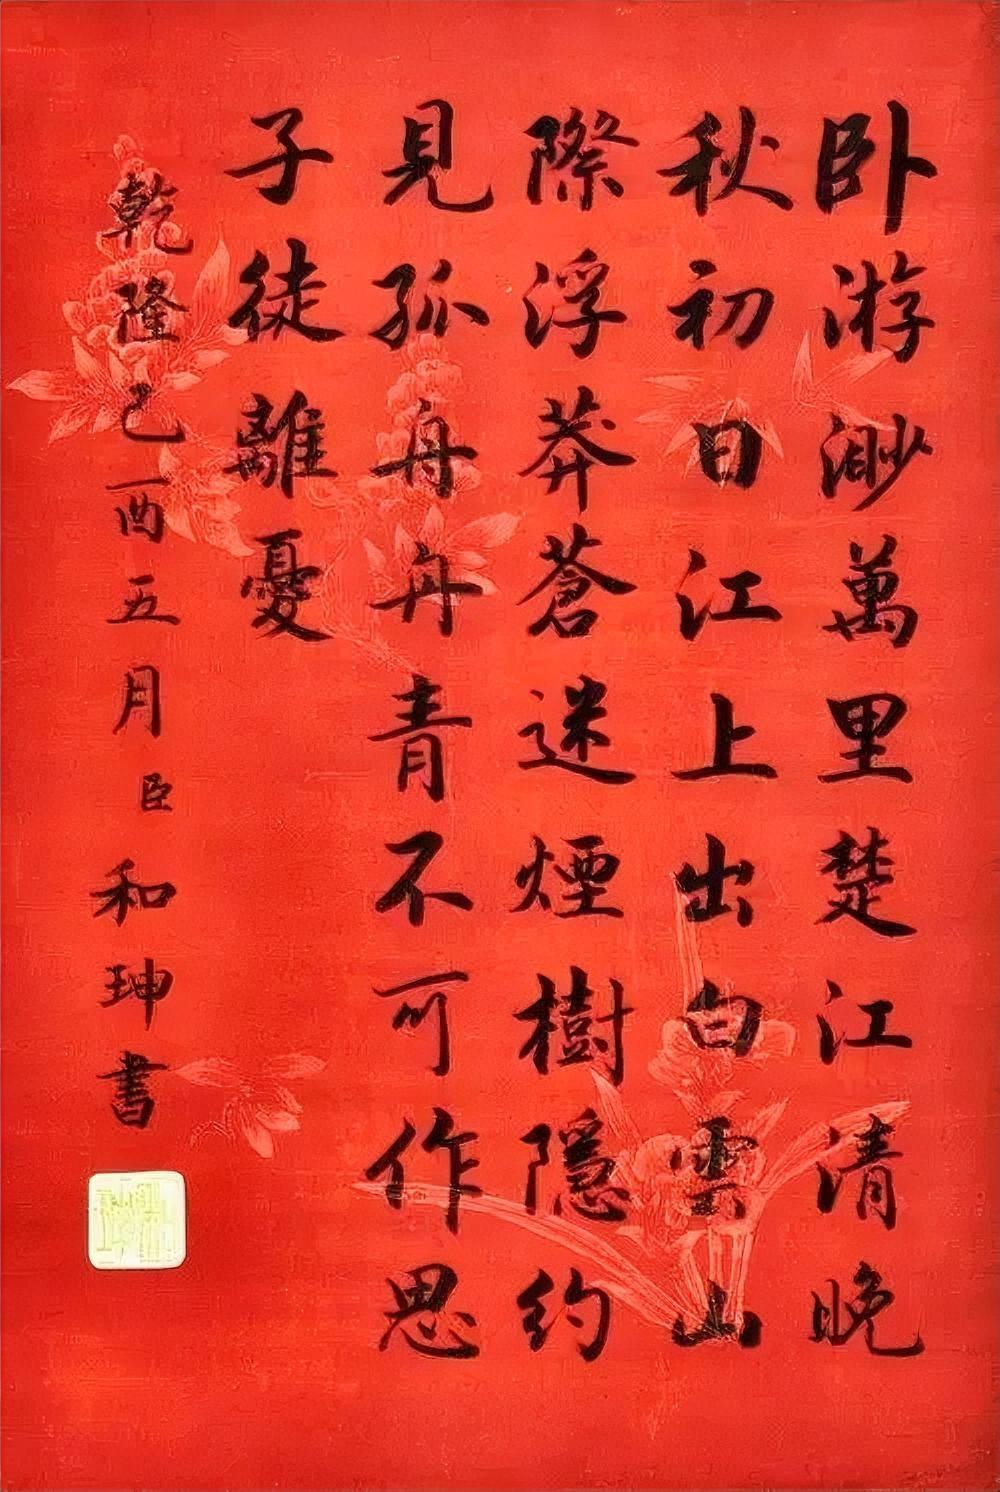 卧游渺萬里楚江清晚
秋初日江上出白雲山
際浮莽蒼迷煙樹隱約
見孤舟舟青不可作思
子徒離憂
乾隆己酉五月臣和珅書